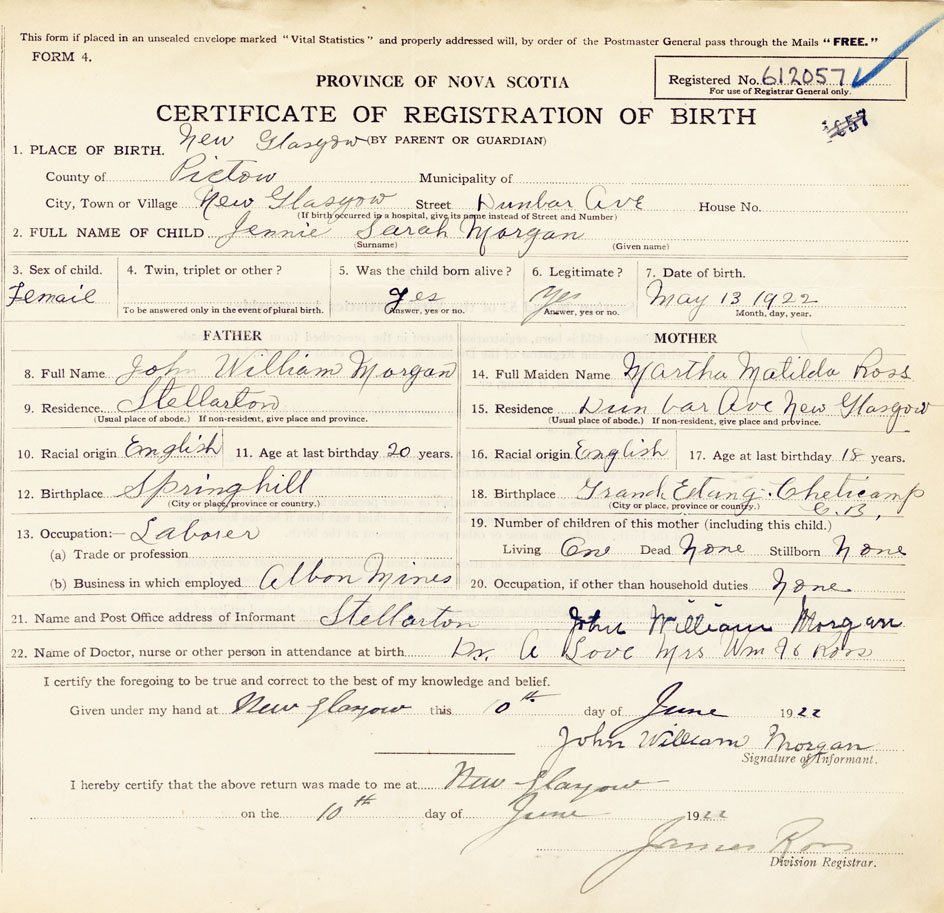 This form if placed in an unsealed envelope marked "Vital Statistics" and properly addressed will, by order of the Postmaster General pass through the Mails "FREE."
FORM 4.
PROVINCE OF NOVA SCOTIA
Registered No. 612057
For use of Registrar General only.
CERTIFICATE OF REGISTRATION OF BIRTH
(BY PARENT OR GUARDIAN)
1. PLACE OF BIRTH. New Glasgow
County of Pictou Municipality of
City, Town or Village New Glasgow Street Dunbar Ave House No.
(If birth occurred in a hospital, give its name instead of Street and Number)
2. FULL NAME OF CHILD Jennie Sarah Morgan
(Surname) (Given name)
3. Sex of child. 4. Twin, triplet or other? 5. Was the child born alive? 6. Legitimate? 7. Date of birth.
Femail yes yes May 13 1922
To be answered only in the event of plural birth. Answer, yes or no. Answer, yes or no. Month, day, year.
FATHER MOTHER
8. Full Name John William Morgan 14. Full Maiden Name Martha Matilda Ross
9. Residence Stellarton 15. Residence Dunbar Ave New Glasgow
(Usual place of abode.) If non-resident, give place and province. (Usual place of abode.) If non-resident, give place and province.
10. Racial origin English 11. Age at last birthday 20 years. 16. Racial origin English 17. Age at last birthday 18 years.
12. Birthplace Springhill 18. Birthplace Grand Etang. Cheticamp C.B.
(City or place, province or country.) (City or place, province or country.)
13. Occupation:— Laborer 19. Number of children of this mother (including this child.)
(a) Trade or profession Living One Dead None Stillborn None
(b) Business in which employed Albon Mines 20. Occupation, if other than household duties None
21. Name and Post Office address of Informant Stellarton John William Morgan
22. Name of Doctor, nurse or other person in attendance at birth Dr. A Love Mrs Wm Ross
I certify the foregoing to be true and correct to the best of my knowledge and belief.
Given under my hand at New Glasgow this 10th day of June 1922
John William Morgan
Signature of Informant.
I hereby certify that the above return was made to me at New Glasgow
on the 10th day of June 1922
James Ross
Division Registrar.